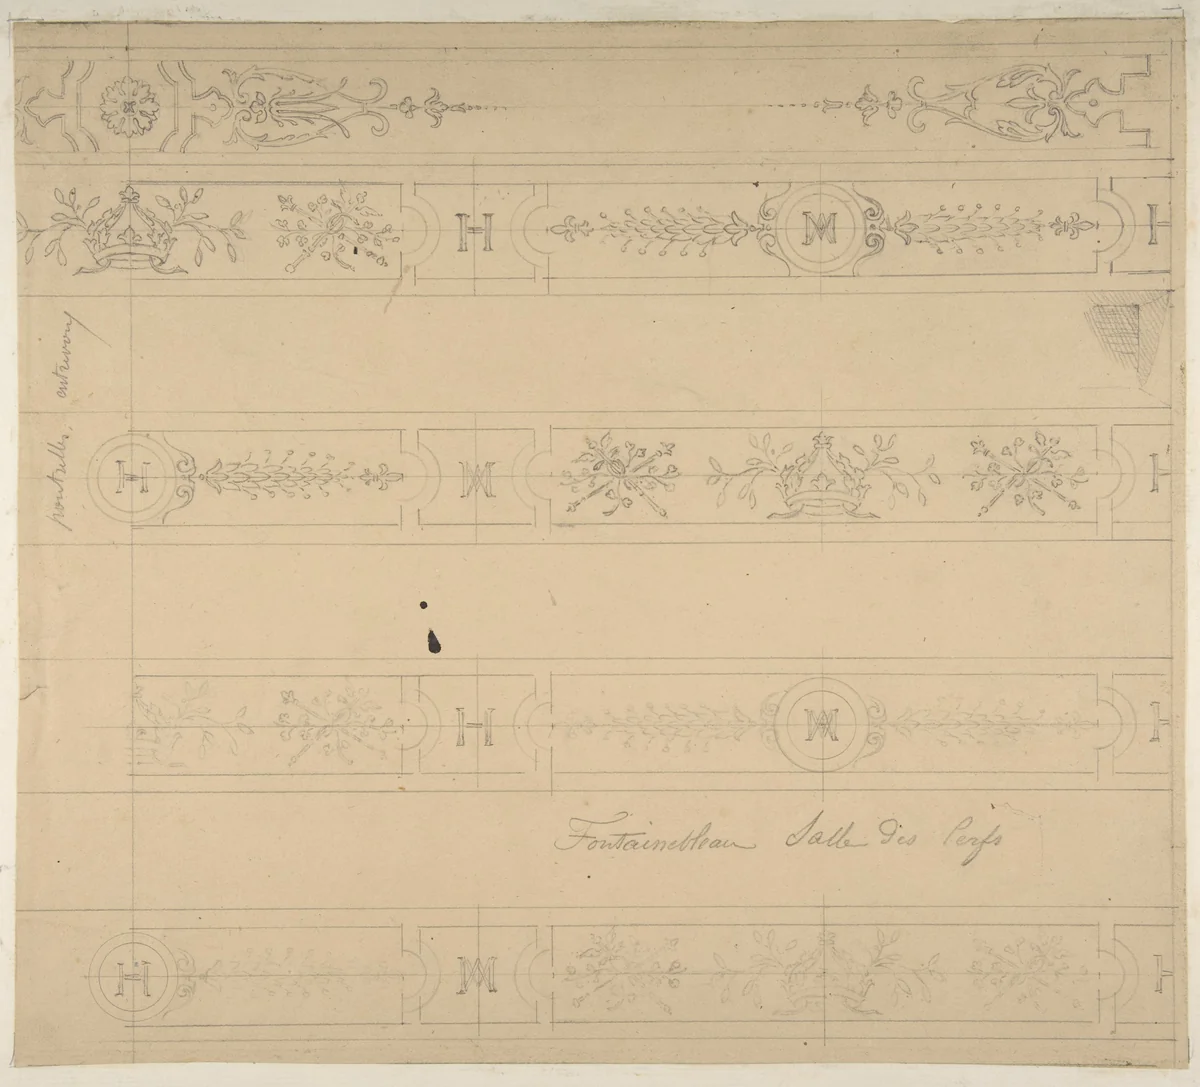 H M H
poutrelles. entrevous
H M H
H M H
Fontainebleau Salle des Cerfs
H M H